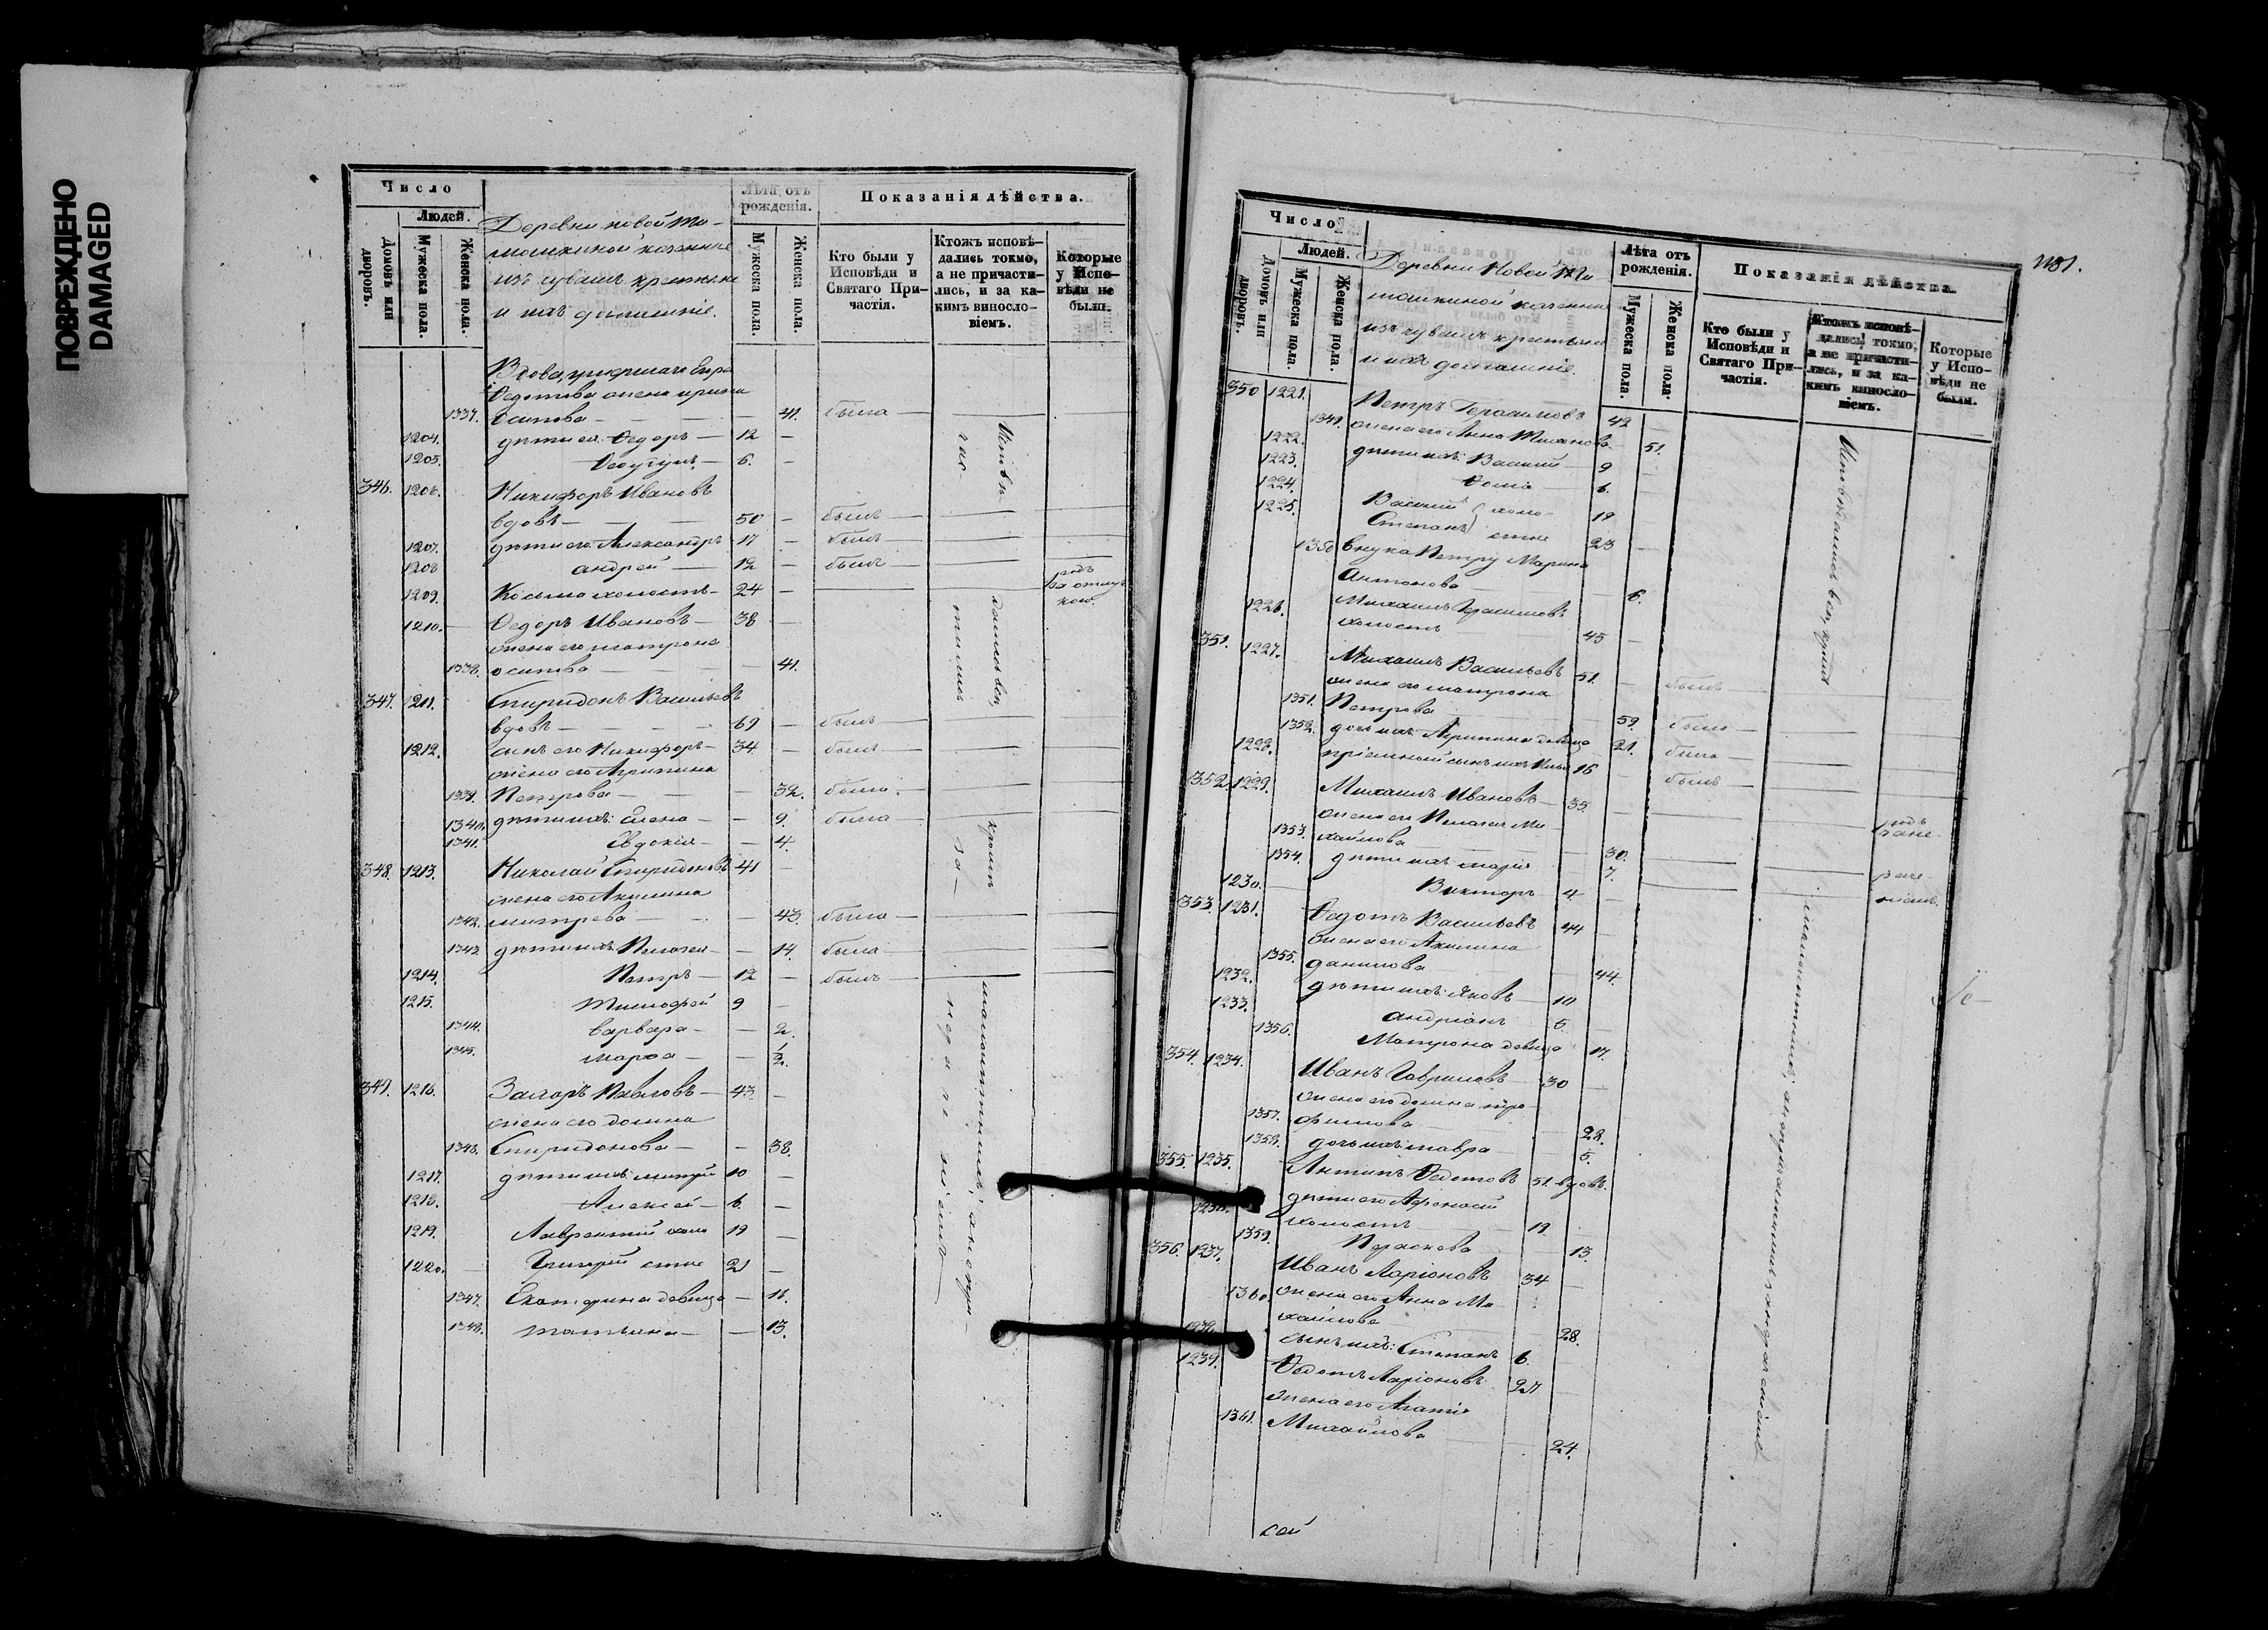 ПОВРЕЖДЕНО
DAMAGED
Число
Людей.
Домовъ или дворовъ.
Мужеска пола.
Женска пола.
Деревни новой Ти-
мошкиной казенные
изъ чувашъ крестьяне
и ихъ домашніе.
Лѣта отъ рожденія.
Мужеска пола.
Женска пола.
Показанія дѣйства.
Кто были у Исповѣди и Святаго При-частія.
Ктожъ исповѣ-дались токмо, а не причасти-лись, и за ка-кимъ винносло-віемъ.
Которые у Испо-вѣди не были.
Вдова,
Федотова жена
1337. Осипова — — — 41. была —
1204. дѣти ея: Федоръ — 12 —
1205. 6. —
346. 1206. Никифоръ Ивановъ
вдовъ — — — 50 — былъ —
1207. дѣти его: Александръ 17 — былъ —
1208 Андрей — 12 — былъ —
1209. Козьма холостъ — 24 —
1210. Федоръ Ивановъ — 38 —
жена его Матрона
1338. Осипова — — — 41.
347. 1211. Спиридонъ Васильевъ
вдовъ — — — 69 — былъ —
1212. сынъ его Никифоръ — 34. — былъ —
жена его Агрипина
1339. Петрова — — — 32. была —
1340. дѣти ихъ: Елена — — 9. была —
1341. Евдокія — — 4.
348. 1213. Николай Спиридоновъ 41 —
жена его Акилина
1342. Митрева — — — 43. была —
1343 дѣти ихъ: Пелагея — — 14. была —
1214. Петръ — 12 — былъ —
1215. Тимофей 9 —
1344. Варвара — — 2.
1345. Марфа — — 1/2.
349. 1216. Захаръ Павловъ — 43. —
жена его Домна
1346. Спиридонова — — 38.
1217. дѣти ихъ: Митрій 10 —
1218. Алексей — 6. —
1219. Лаврентий холо 19 —
1220. Григорій стые 21 —
1347. Екатерина девица — 16.
1348. Татьяна — — 13.
1181.
Число
Людей.
Домовъ или дворовъ.
Мужеска пола.
Женска пола.
Деревни Новой Ти
мошкиной казенные
изъ чувашъ крестьяне
и ихъ домашніе.
Лѣта отъ рожденія.
Мужеска пола.
Женска пола.
Показанія дѣйства.
Кто были у Исповѣди и Святаго При-частія.
Ктожъ исповѣ-дались токмо, а не причасти-лись, и за ка-кимъ винносло-віемъ.
Которые у Испо-вѣди не были.
350 1221. Петръ Герасимовъ 42 —
1349. жена его Анна — 51.
1222. дѣти ихъ: Василий — 9 —
1223. Фома — 6. —
1224. Василий холо- 19
1225. Степанъ стые 23 —
1350 внука Петру Марина
Антонова — 6.
1226. Михаилъ Герасимовъ
холостъ 45 —
351. 1227. Михаилъ Васильевъ 51. — былъ —
жена его Матрона
1351. Петрова — 59. была —
1352. дочь ихъ Агрипина девица 21. была —
1228. пріемный сынъ ихъ 16 — былъ —
352. 1229. Михаилъ Ивановъ — 35.
жена его Пелагея Ми-
1353. хайлова — 30.
1354. дѣти ихъ Марія 7.
1230. — Викторъ 4. —
353. 1231. Федотъ Васильевъ 44 —
жена его Акилина
1355. Данилова — 44.
1232. дѣти ихъ: Яковъ — 10
1233. Андріанъ 5. —
1356. Матрона девица 17.
354. 1234. Иванъ Гавриловъ 30 —
жена его Домна Тро-
1357. фимова — 28.
1358. дочь ихъ: Мавра — 5.
355. 1235. Антипъ Федотовъ 51. вдовъ.
1236. дѣти его Афонасий
холостъ — 19.
1359. Параскева — 13.
356. 1237. Иванъ Ларіоновъ 34 —
1360. жена его Анна Ми-
хайлова — 28.
1238. сынъ ихъ: Степанъ 6.
1239. Федотъ Ларіоновъ 27 —
жена его Агапія
1361. Михайлова — 24.